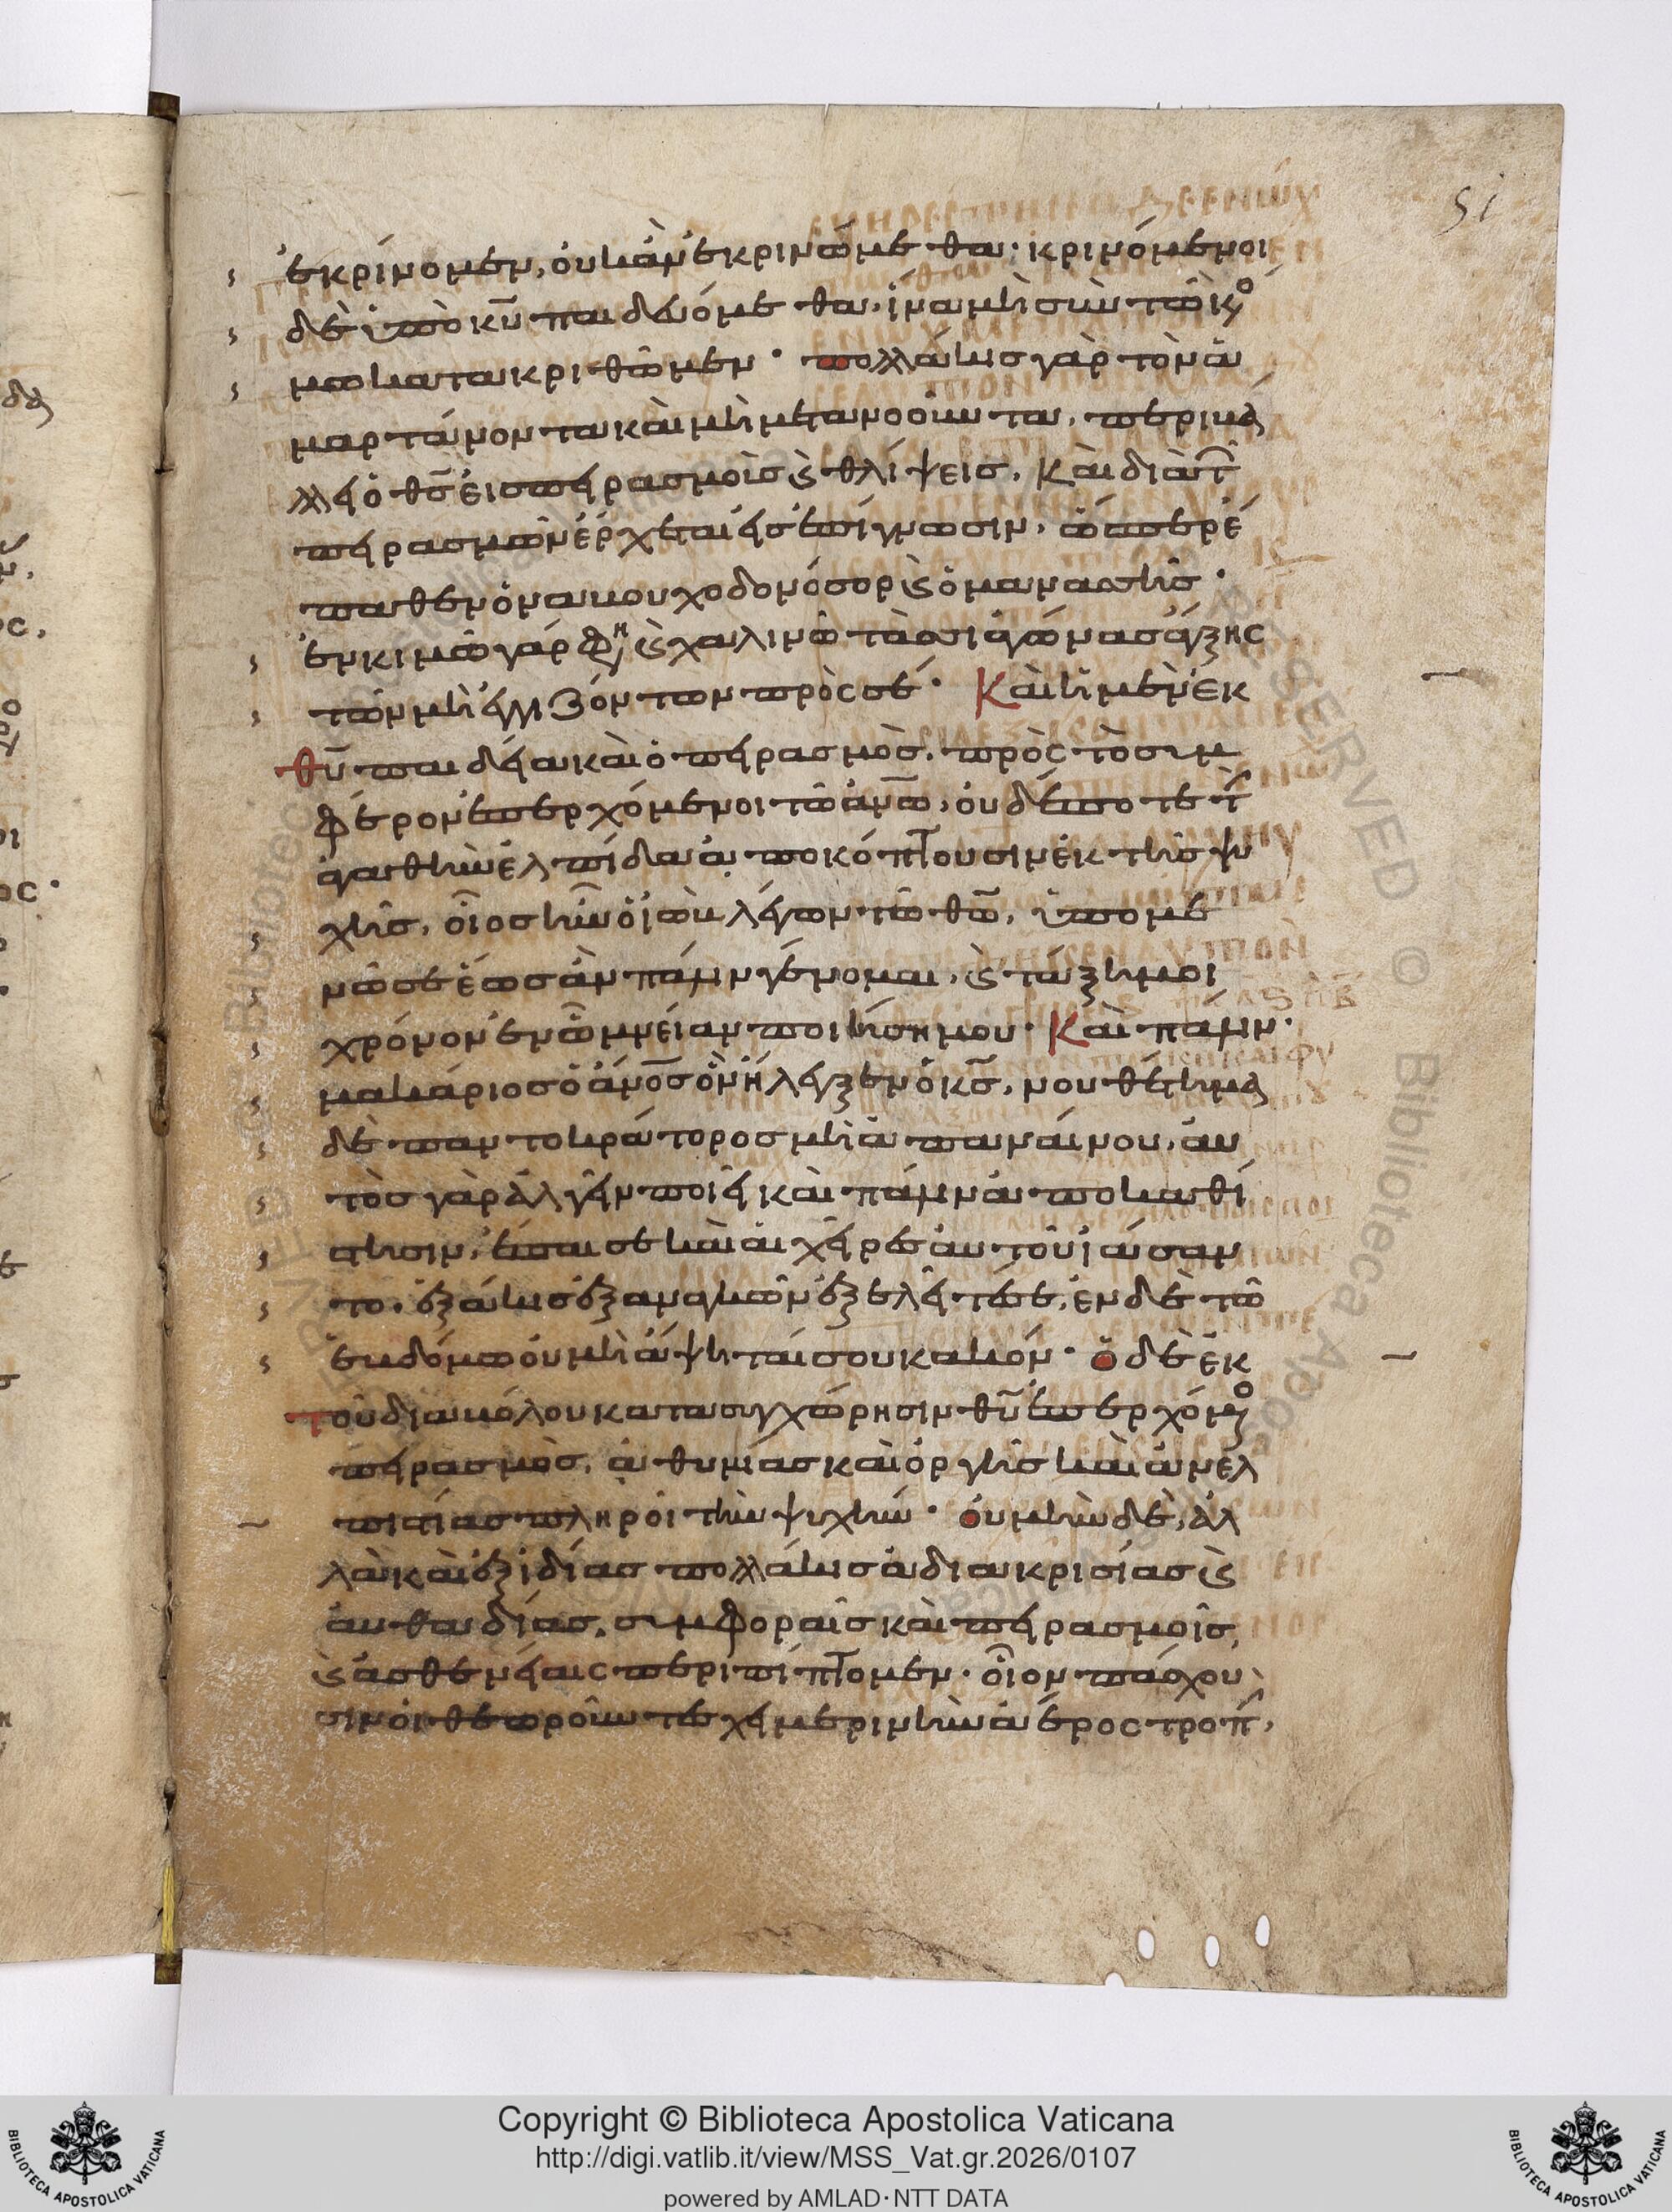 51
ἐκρίνομεν, οὐκ ἂν ἐκρινώμεθα· κρινόμενοι
δὲ ὑπὸ κ̅υ̅ παιδευόμεθα, ἵνα μὴ σὺν τῶ κό
μω κατακριθῶμεν· πολλάκις γὰρ τὸν ἁ
μαρτάνοντα καὶ μὴ μετανοοῦντα, περιβά
λλει ὁ θ̅ς̅ εἰς πειρασμοῖς ϗ θλίψεις, καὶ διὰ τ
πειρασμῶν ἔρχεται εἰς ἐπίγνωσιν, ὡς περιέ
παθεν ὁ ναβουχοδονόσορ ϗ ὁ μανασσῆς·
ἐν κημῶ γάρ φη ϗ χαλινῶ τὰς σιαγόνας ἄγξης
τῶν μὴ ἐγγιζόντων πρὸς σέ· Καὶ ἡ μὲν ἐκ
θ̅υ̅ παιδεία καὶ ὁ πειρασμὸς, πρὸς τὸ συμ
φέρον ἐπερχόμενοι τῶ ἀν̅ω̅, οὐδέποτε τ
ἀγαθὴν ἐλπίδα ἀποκόπτουσιν ἐκ τῆς ψυ
χῆς, οἷος ἦν ὁ ἰὼβ λέγων τῶ θ̅ω̅, ὑπομε
νῶ σε ἕως ἂν πάλιν γένομαι, ϗ τάξη μοι
χρόνον ἐν ὧ μνείαν ποιήση μου· Καὶ πάλιν·
μακάριος ὁ ἄν̅ο̅ς̅ ὃν ἤλεγξεν ὁ κ̅ς̅, νουθέτημα
δὲ παντοκράτορος μὴ ἀπαναίνου, αὐ
τὸς γὰρ ἀλγεῖν ποιεῖ καὶ πάλιν ἀποκαθί
στησιν, ἔπαισε καὶ αἱ χεῖρες αὐτοῦ ἰάσαν
το· ἑξάκις ἐξ ἀναγκῶν ἐξελεῖταί σε, ἐν δὲ τῶ
ἑβδόμω οὐ μὴ ἅψηταί σου κακόν· ὁ δὲ ἐκ
τοῦ διαβόλου κατὰ συγχώρησιν θ̅υ̅ ἐπερχόμο
πειρασμὸς, ἀθυμίας καὶ ὀργῆς καὶ ἀνελ
πιστίας πληροῖ τὴν ψυχὴν· οὐ μὴν δὲ, ἀλ
λὰ καὶ ἐξ ἰδίας πολλάκις ἀδιακρισίας ϗ
αὐθαδίας, συμφοραῖς καὶ πειρασμοῖς,
ϗ ἀσθενείαις περιπίπτομεν· οἷον πάσχου
σιν οἱ θεωροῦντες χειμερινὴν ἀέρος τροπ,
Copyright © Biblioteca Apostolica Vaticana
http://digi.vatlib.it/view/MSS_Vat.gr.2026/0107
powered by AMLAD·NTT DATA
BIBLIOTECA APOSTOLICA VATICANA
BIBLIOTECA APOSTOLICA VATICANA